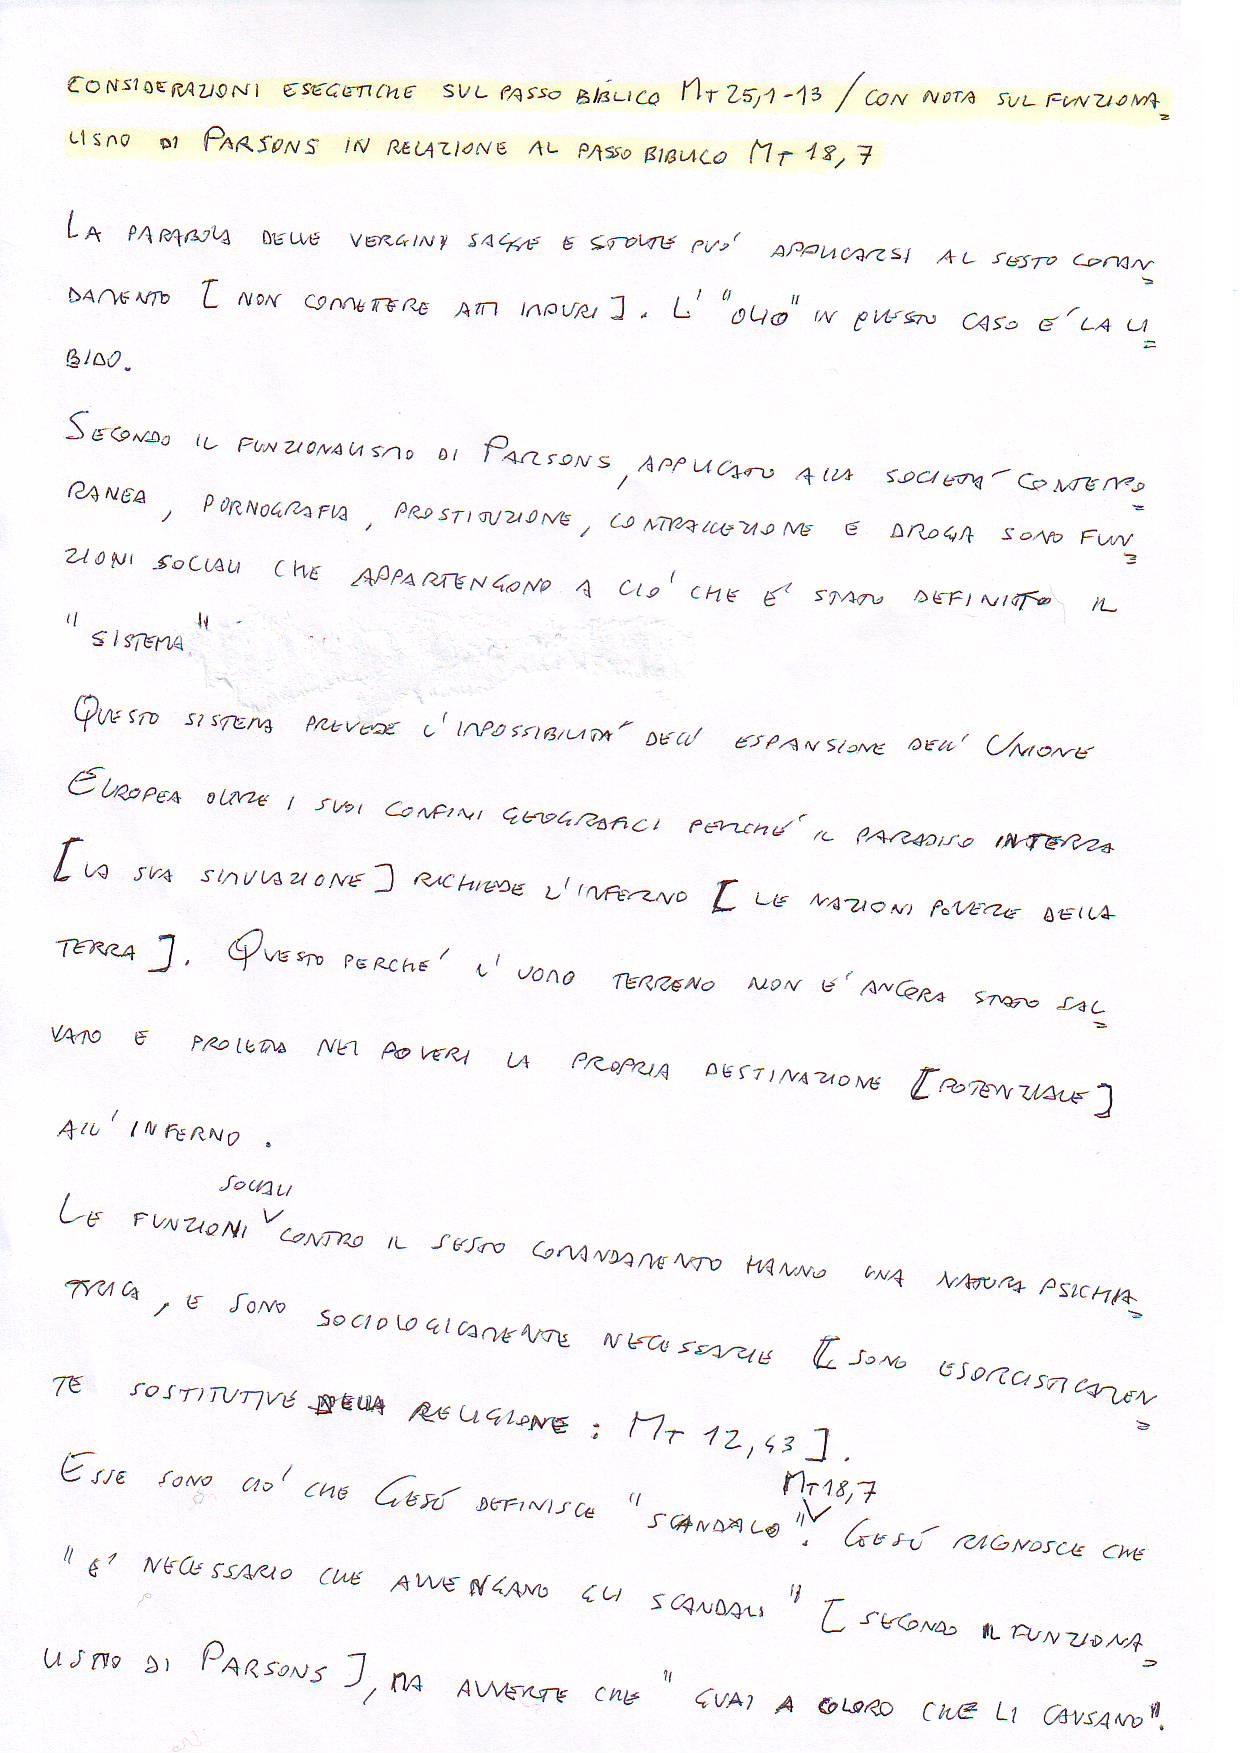 CONSIDERAZIONI ESEGETICHE SUL PASSO BIBLICO MT 25,1-13 / CON NOTA SUL FUNZIONA=
LISMO DI PARSONS IN RELAZIONE AL PASSO BIBLICO MT 18,7
LA PARABOLA DELLE VERGINI SAGGE E STOLTE PUO' APPLICARSI AL SESTO COMAN=
DAMENTO [ NON COMETTERE ATTI IMPURI ]. L' "OLIO" IN QUESTO CASO E' LA LI=
BIDO.
SECONDO IL FUNZIONALISMO DI PARSONS, APPLICATO ALLA SOCIETA' CONTEMPO=
RANEA, PORNOGRAFIA, PROSTITUZIONE, CONTRACCEZIONE E DROGA SONO FUN=
ZIONI SOCIALI CHE APPARTENGONO A CIO' CHE E' STATO DEFINITO IL
"SISTEMA"
QUESTO SISTEMA PREVEDE L'IMPOSSIBILITA' DELL' ESPANSIONE DELL' UNIONE
EUROPEA OLTRE I SUOI CONFINI GEOGRAFICI PERCHE' IL PARADISO IN TERRA
[ LA SUA SIMULAZIONE ] RICHIEDE L'INFERNO [ LE NAZIONI POVERE DELLA
TERRA ]. QUESTO PERCHE' L' UOMO TERRENO NON E' ANCORA STATO SAL=
VATO E PROIETTA NEI POVERI LA PROPRIA DESTINAZIONE [POTENZIALE]
ALL' INFERNO.
SOCIALI
LE FUNZIONI CONTRO IL SESTO COMANDAMENTO HANNO UNA NATURA PSICHIA=
TRICA, E SONO SOCIOLOGICAMENTE NECESSARIE [ SONO ESORCISTICAMEN=
TE SOSTITUTIVE DELLA RELIGIONE : MT 12,43 ].
MT 18,7
ESSE SONO CIO' CHE GESÚ DEFINISCE "SCANDALO". GESÚ RICONOSCE CHE
"E' NECESSARIO CHE AVVENGANO GLI SCANDALI" [ SECONDO IL FUNZIONA=
LISMO DI PARSONS ], MA AVVERTE CHE "GUAI A COLORO CHE LI CAUSANO".